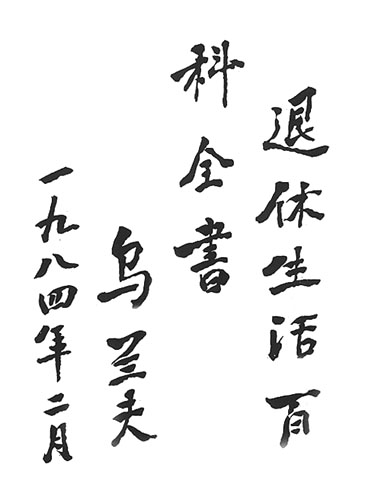 退休生活百
科全書
乌兰夫
一九八四年二月